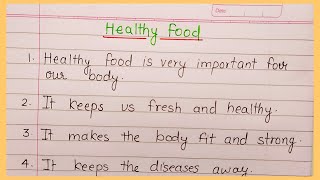 Healthy Food
1. Healthy food is very important for
our body.
2. It keeps us fresh and healthy.
3 It makes the body fit and strong.
4. It keeps the diseases away.